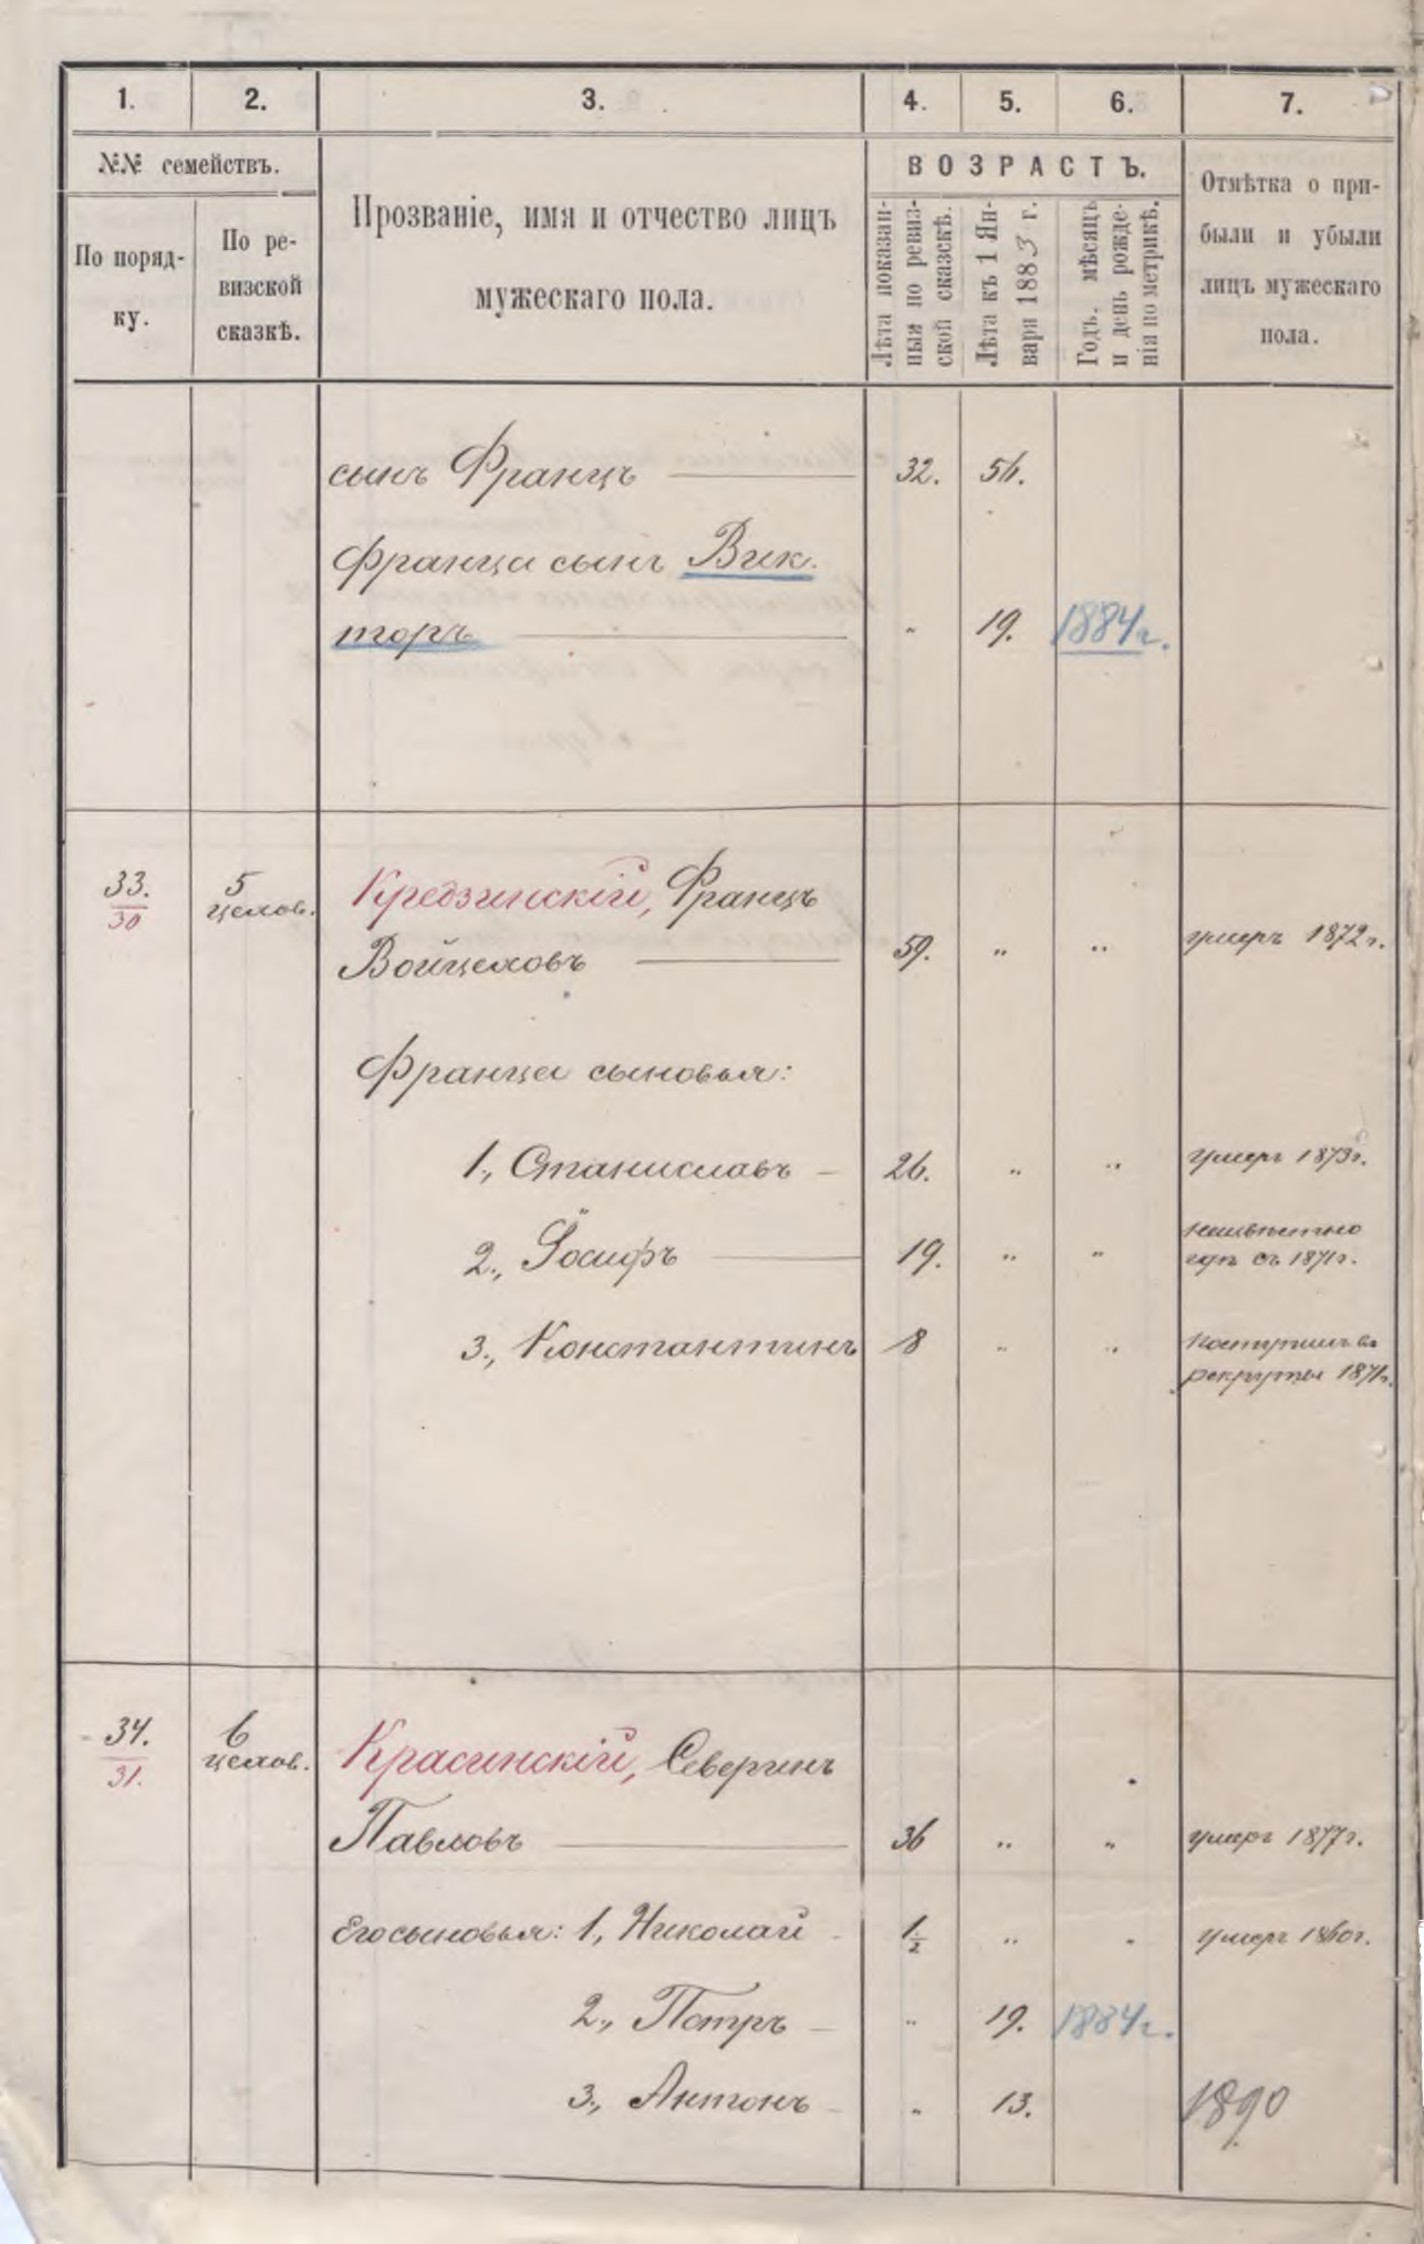 1. 2. 3. 4. 5. 6. 7.
№№ семействъ.
По поряд-
ку.
По ре-
визской
сказкѣ.
Прозваніе, имя и отчество лицъ
мужескаго пола.
ВОЗРАСТЪ.
Лѣта показан-
ныя по ревиз-
ской сказскѣ.
Лѣта къ 1 Ян-
варя 1883 г.
Годъ, мѣсяцъ
и день рожде-
нія по метрикѣ.
Отмѣтка о при-
были и убыли
лицъ мужескаго
пола.
сынъ Францъ 32. 56.
Франца сынъ Вик.
торъ " 19. 1884 г.
33. 5 Кредзинскій, Францъ
30 цехов.
Войцеховъ 59. " " умеръ 1872 г.
Франца сыновья:
1., Станиславъ - 26. " " умеръ 1873 г.
2., Іосифъ 19. " " неизвѣстно
гдѣ съ 1871 г.
3., Константинъ 8 " " поступилъ въ
рекруты 1871 г.
34. 6 Красинскій, Северинъ
31. цехов.
Павловъ 36 " " умеръ 1877 г.
Его сыновья: 1, Николай - 1/2 " " умеръ 1860 г.
2., Петръ - " 19. 1884 г.
3., Антонъ - " 13. 1890